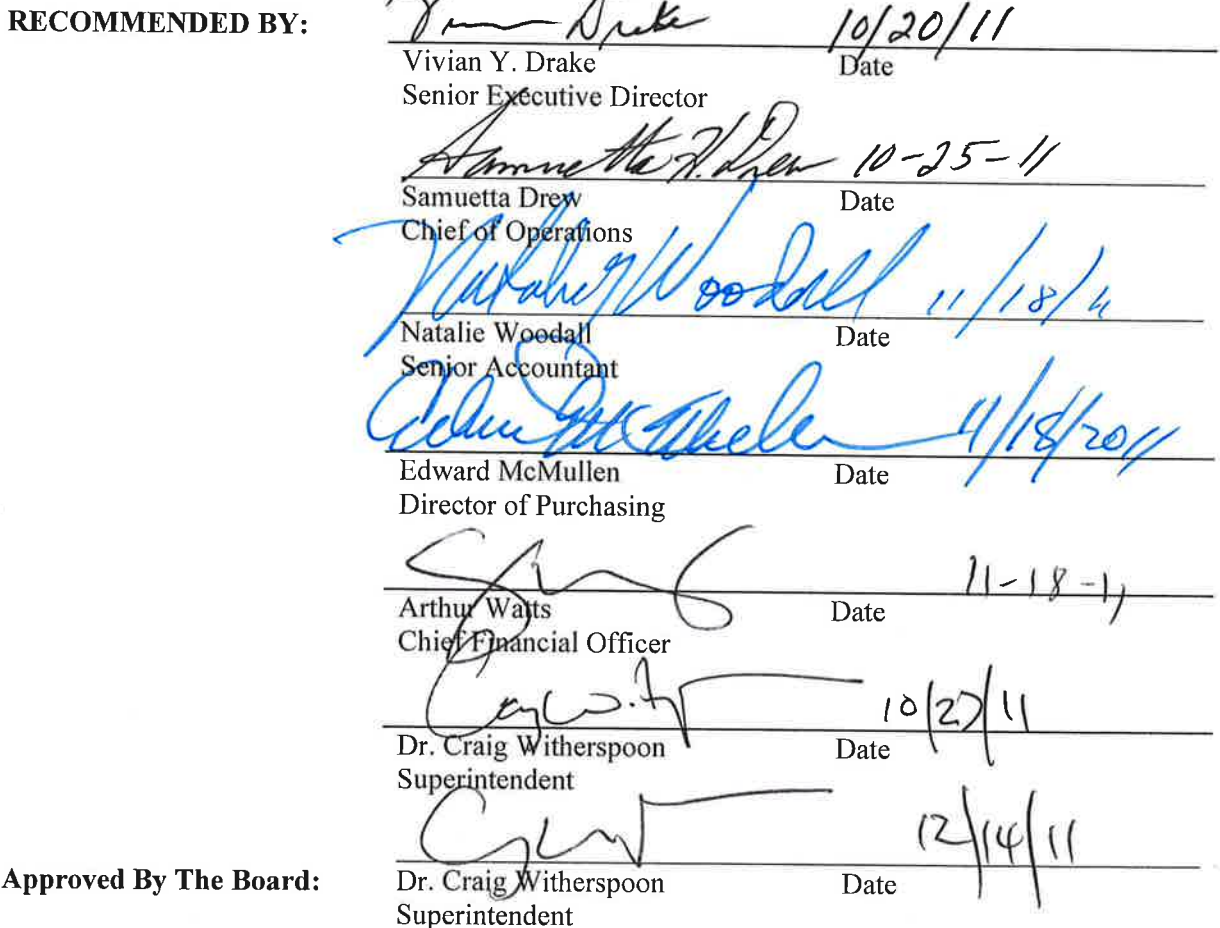 RECOMMENDED BY:
Drake 10/20/11
Vivian Y. Drake Date
Senior Executive Director
Samuetta H. Drew 10-25-11
Samuetta Drew Date
Chief of Operations
Woodall 11/18/11
Natalie Woodall Date
Senior Accountant
11/18/2011
Edward McMullen Date
Director of Purchasing
11-18-11
Arthur Watts Date
Chief Financial Officer
10/27/11
Dr. Craig Witherspoon Date
Superintendent
12/14/11
Approved By The Board: Dr. Craig Witherspoon Date
Superintendent